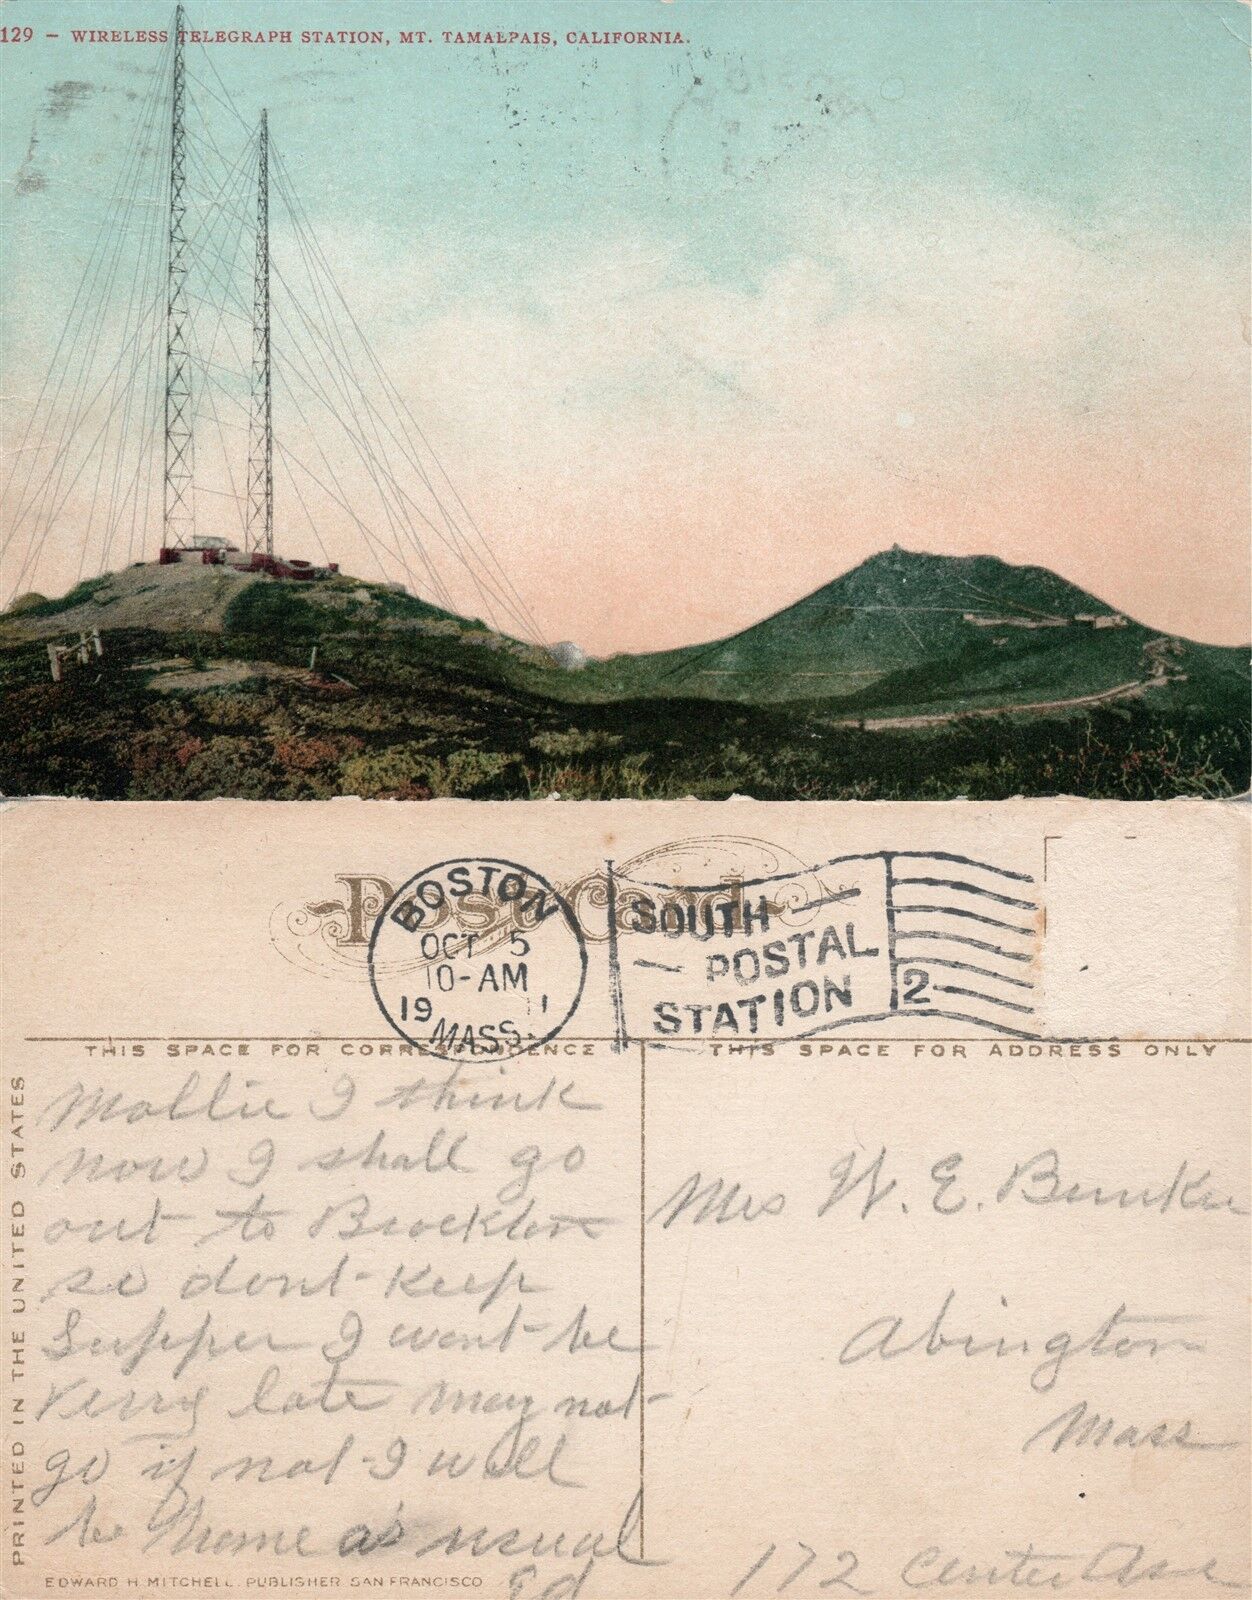 129 - WIRELESS TELEGRAPH STATION, MT. TAMALPAIS, CALIFORNIA.
Post Card
BOSTON
OCT 5
10-AM
1911
MASS.
SOUTH
POSTAL
STATION
2
THIS SPACE FOR CORRESPONDENCE
THIS SPACE FOR ADDRESS ONLY
PRINTED IN THE UNITED STATES
Mollie I think
now I shall go
out to Brockton
so dont keep
Supper I wont be
verry late may not
go if not I will
be home as usual
Ed
Mrs W. E. Bunker
Abington
Mass
172 Center Ave
EDWARD H. MITCHELL, PUBLISHER SAN FRANCISCO